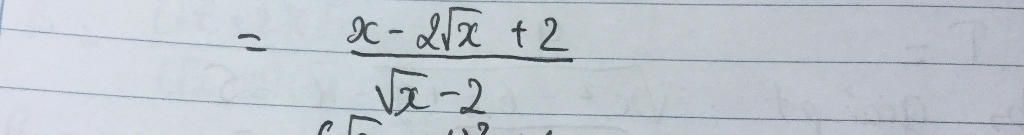 = \frac{x - 2\sqrt{x} + 2}{\sqrt{x} - 2}